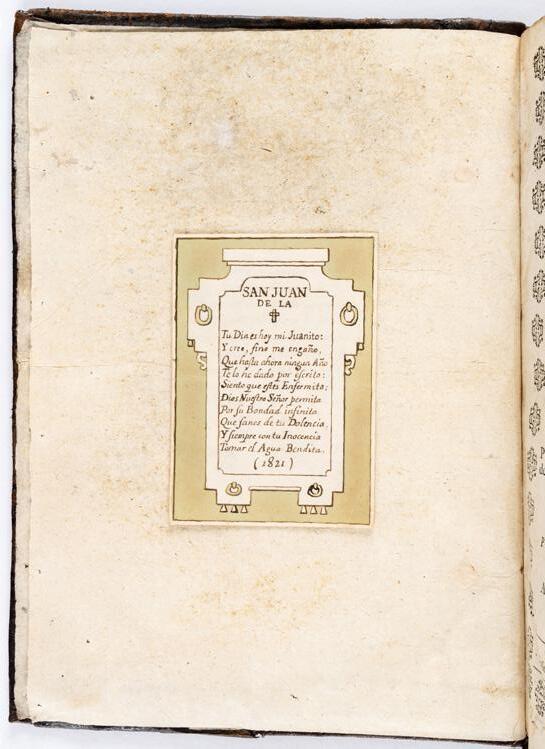 SAN JUAN
DE LA
✝
Tu Dia es hoy mi Juanito:
Y cree, sino me engaño,
Que hasta ahora ningun Año
Te lo he dado por escrito:
Siento que estès Enfermito:
Dios Nuestro Señor permita
Por su Bondad infinita
Que sanes de tu Dolencia,
Y siempre con tu Inocencia
Tomar el Agua Bendita.
(1821)